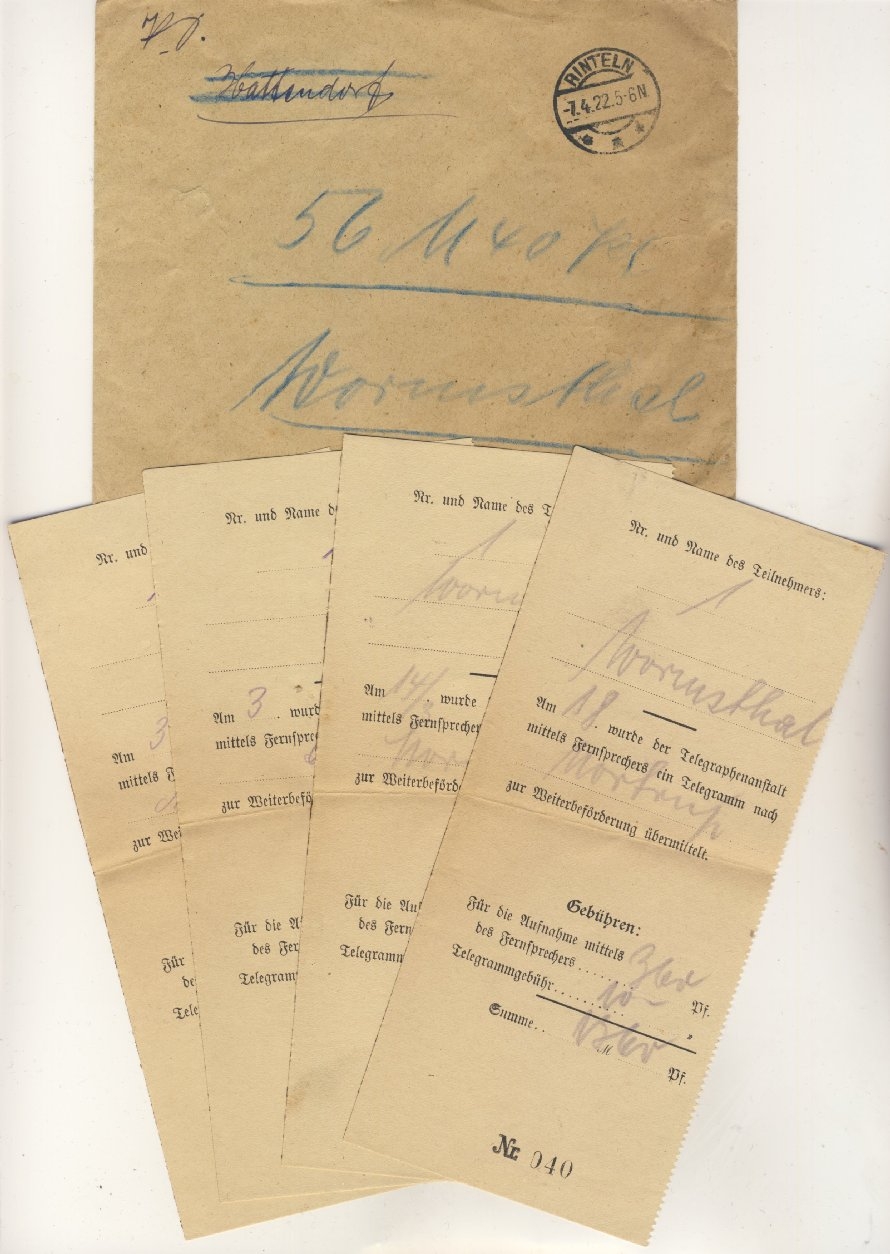 Wattendorf
RINTELN
-7.4.22.5-6N.
56 M 40 Pf.
Wormsthal
Nr. und
Am 3
mittels F
zur Wei
Für
de
Tele
Nr. und Name d
Am 3 wurd
mittels Fernspre
zur Weiterbefö
Für die A
des Fer
Telegram
Nr. und Name des T
1
Worm
Am 14/ wurde
mittels Fernsprecher
zur Weiterbeförde
Für die Auf
des Fern
Telegramm
Nr. und Name des Teilnehmers:
1
Wormsthal
Am 18 wurde der Telegraphenanstalt
mittels Fernsprechers ein Telegramm nach
zur Weiterbeförderung übermittelt.
Gebühren:
Für die Aufnahme mittels
des Fernsprechers Pf.
Telegrammgebühr 10 — "
Summe M Pf.
Nr. 040